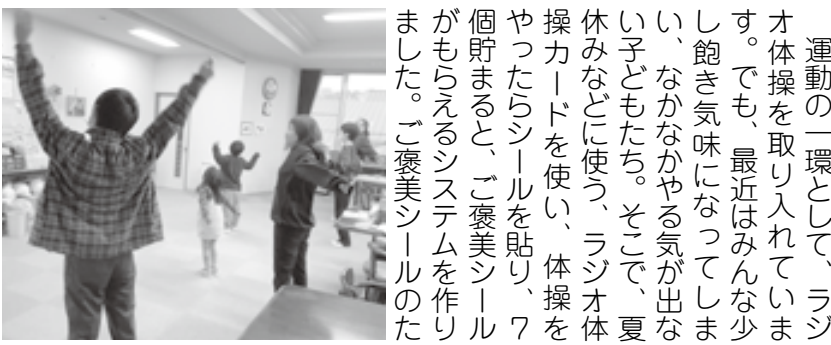 運動の一環として、ラジ
オ体操を取り入れていま
す。でも、最近はみんな少
し飽き気味になってしま
い、なかなかやる気が出な
い子どもたち。そこで、夏
休みなどに使う、ラジオ体
操カードを使い、体操を
やったらシールを貼り、7
個貯まると、ご褒美シール
がもらえるシステムを作り
ました。ご褒美シールのた